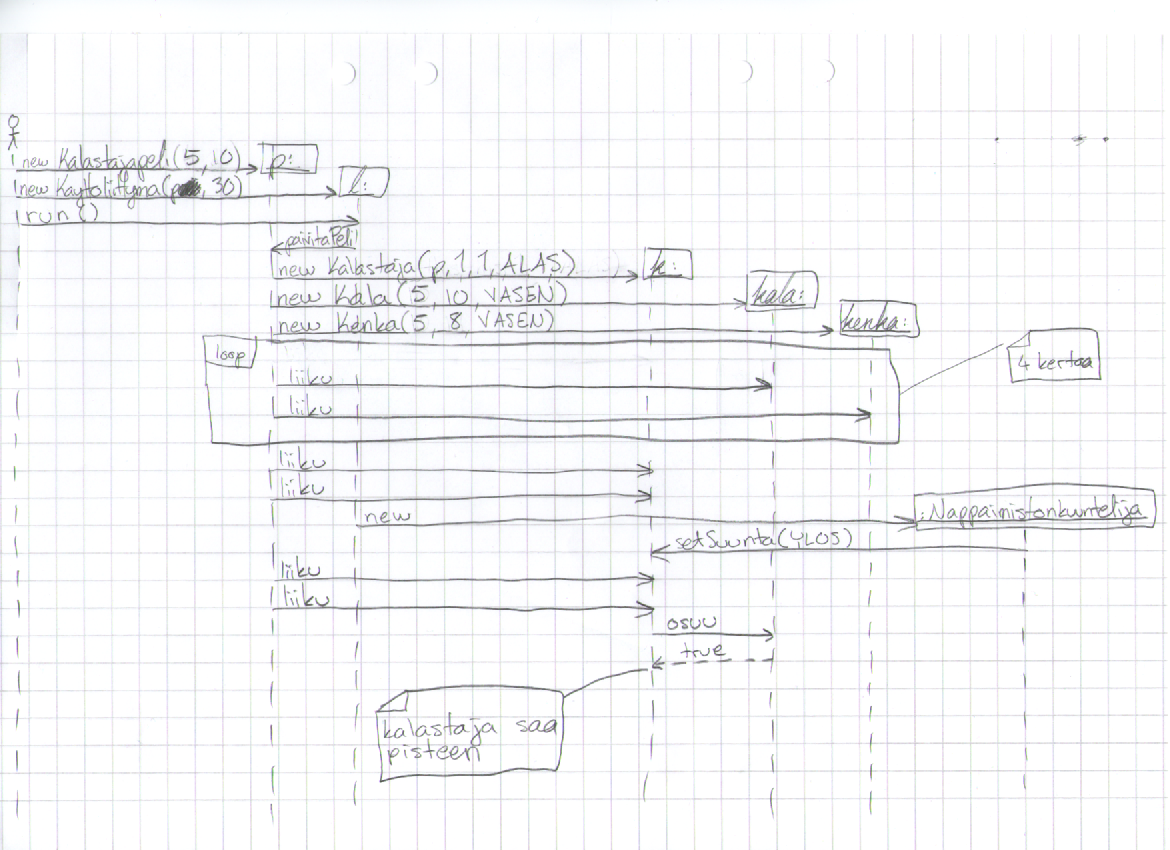 new Kalastajapeli(5, 10)
p:
new Kayttoliittyma(p, 30)
l:
run()
paivitaPeli
new Kalastaja(p, 1, 1, ALAS)
k:
new Kala(5, 10, VASEN)
kala:
new Kenka(5, 8, VASEN)
kenka:
loop
4 kertaa
liiku
liiku
liiku
liiku
new
:Nappaimistonkuuntelija
setSuunta(YLOS)
liiku
liiku
osuu
true
kalastaja saa
pisteen